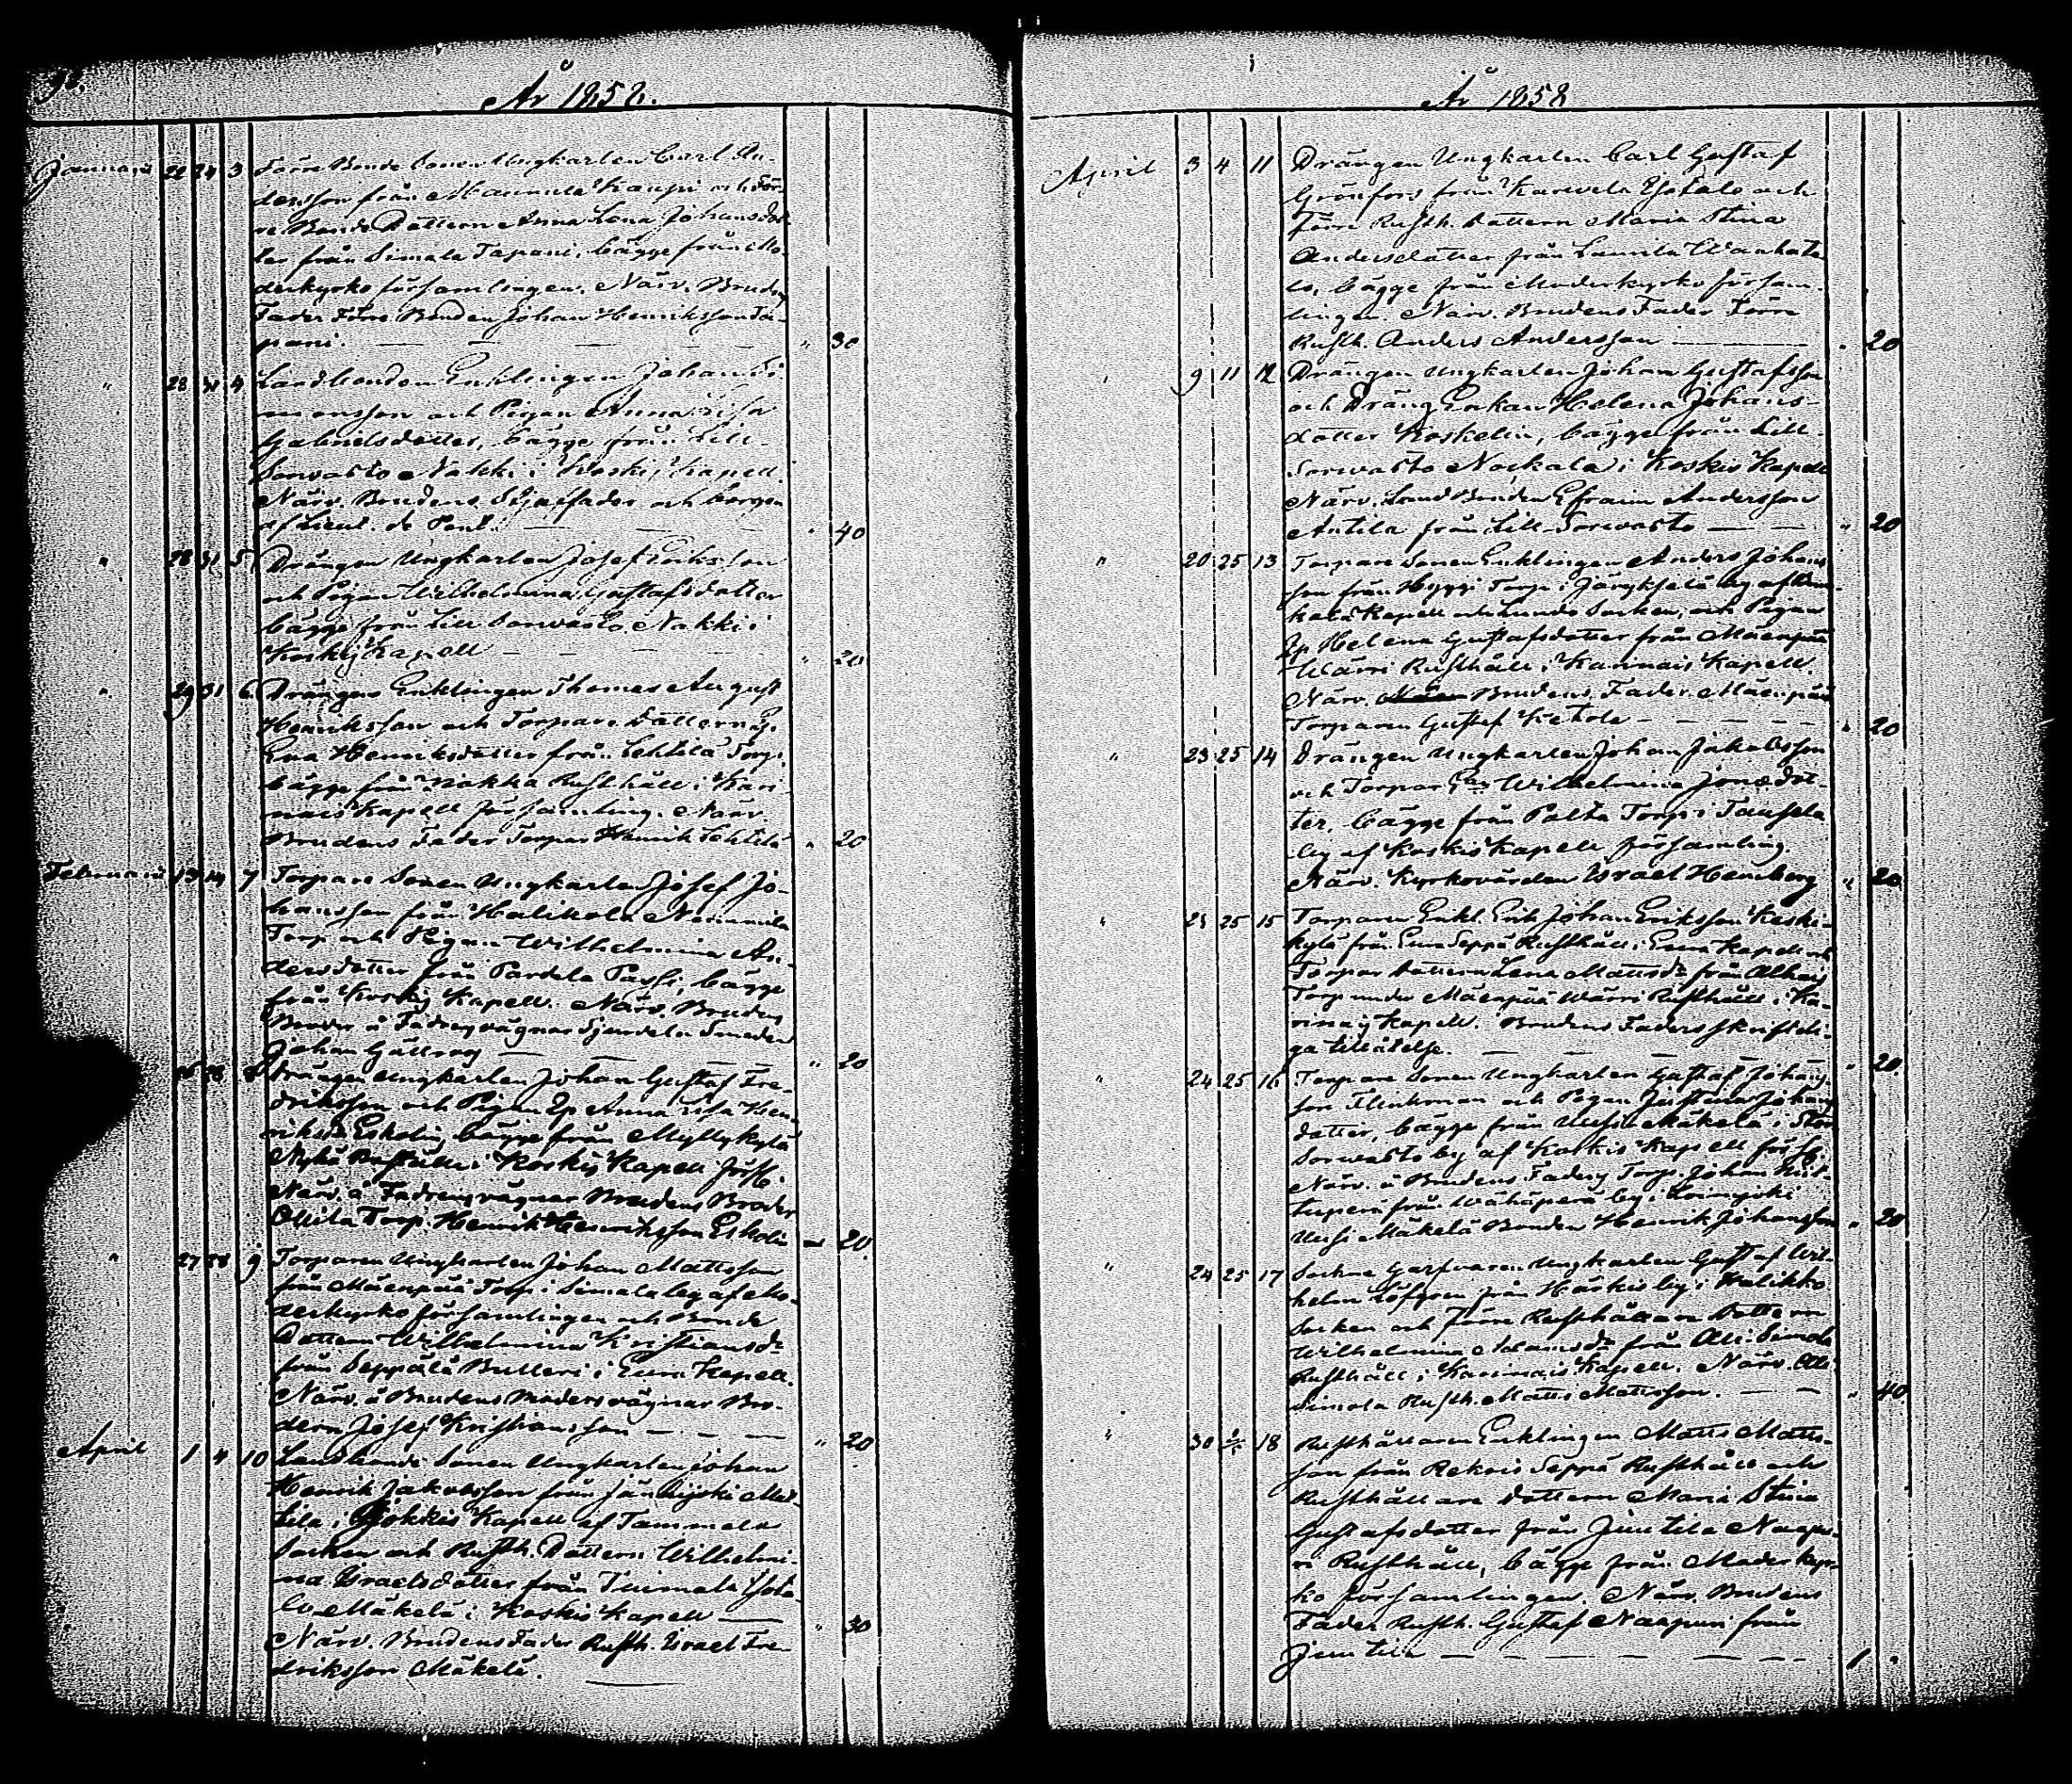 38.
År 1858.
Januari 22 24 3 Förre Bonde Sonen Ungkarlen Carl An-
dersson från Mannula Kauppi och För-
re Bonde Dottern Anna Lena Johansdot-
ter från Simala Tapani, bägge från Mo-
derkyrko församlingen. Närv. Brudens
Fader Förre Bonden Johan Henriksson Ta-
pani. — — — — — " 30
" 28 31 4 Landbonden Enklingen Johan Si-
monsson och Pigan Anna Lisa
Gabrielsdotter, bägge från Lill-
Sorvasto Nakki i Koskis Kapell.
Närv. Brudens Styffader och borgen
af Lieut. de Pont. — — — " 40
" 28 31 5 Drängen Ungkarlen Josef Eriksson
och Pigan Wilhelmina Gustafsdotter
bägge från Lill Sorvasto Nakki i
Koskis Kapell — — — " 20
" 29 31 6 Drängen Enklingen Thomas August
Henriksson och Torpare Dottern
Eva Henriksdotter från Lehtilä Torp,
bägge från Nokka Rusthåll i Kari-
nais Kapell församling. Närv.
Brudens Fader Torpar Henrik Lehtilä " 20
Februari 13 14 7 Torpare Sonen Ungkarlen Josef Jo-
hansson från Halikola Niinimäki
Torp och Pigan Wilhelmina An-
dersdotter från Pardela Passi, bägge
från Koskis Kapell. Närv. Brudens
Broder å Fadrens vägnar Sjundela Smeden
Johan Gällros — — — " 20
26 28 8 Drängen Ungkarlen Johan Gustaf Fre-
driksson och Pigan Ep Anna Lisa Hen-
riksdr Eskolin bägge från Myllykylä
Nykä Rusthåll i Koskis Kapell förs.
Närv. å Fadrens vägnar Brudens Broder
Ollila Torp. Henrik Henriksson Eskolin — 20
" 27 28 9 Torparen Ungkarlen Johan Mattsson
från Mäenpää Torp i Simala by af Mo-
derkyrko församlingen och Bonde
Dottern Wilhelmina Kristiansdr
från Seppälä Bulleri i Eura Kapell.
Närv. å Brudens Moders vägnar Bro-
dern Josef Kristiansson — — — " 20
April 1 4 10 Landbonde Sonen Ungkarlen Johan
Henrik Jakobsson från Jänhijoki
i Jokkis Kapell af Tammela
Socken och Rusth. Dottern Wilhelmi-
na Israelsdotter från Tuimala Iso-
Mäkelä i Koskis Kapell —— " 30
Närv. Brudens Fader Rusth. Israel Fre-
driksson Mäkelä.
År 1858
April 3 4 11 Drängen Ungkarlen Carl Gustaf
Grönfors från Karvela Isotalo och
Förre Rusth. Dottern Maria Stina
Andersdotter från Laurila Wanhata-
lo, bägge från Moderkyrko försam-
lingen. Närv. Brudens Fader Förre
Rusth. Anders Andersson —— " 20
" 9 11 12 Drängen Ungkarlen Johan Gustafsson
och Dräng Enkan Helena Johans-
dotter Koskelin, bägge från Lill-
Sorvasto Nockala i Koskis Kapell
Närv. Landbonden Efraim Andersson
Antila från Lill-Sorvasto — — " 20
" 20 25 13 Torpare Sonen Enklingen Anders Johans-
son från Hyppi Torp i Järykselä by af
Kapell och Lundo Socken, och Pigan
Ep Helena Gustafsdotter från Mäenpää
Wärri Rusthåll i Karinais Kapell.
Närv. Brudens Fader Mäenpää
Torparen Gustaf Ketola — — — " 20
" 23 25 14 Drängen Ungkarlen Johan Jakobsson
och Torpar Wilhelmina Jonædot-
ter, bägge från Palta Torp i Tausela
by af Koskis Kapell församling.
Närv. Kyrkovärden Israel Hemberg " 20
" 23 25 15 Torparen Enkl. Erik Johan Eriksson Keski-
kylä från Eura Seppä Rusthåll i Eura Kapell och
Torpar Dottern Lena Mattsdr från Alhais
Torp under Mäenpää Wärri Rusthåll i Ka-
rinais Kapell. Brudens Faders skriftli-
ga tillåtelse. — — — — " 20
" 24 25 16 Torpare Sonen Ungkarlen Gustaf Johans-
son Flinkman och Pigan Justina Johans-
dotter, bägge från Uusi Mäkelä i Stor
Sorvasto by af Koskis Kapell förs.
Närv. å Brudens Faders Torp. Johan
från Wähäperä by i Loimijoki
Uusi Mäkelä Bonden Henrik Johansson " 20
" 24 25 17 Sockne Garfvaren Ungkarlen Gustaf Wil-
helm Löfgren från Härkis by i Halikko
Socken och Förre Rusthållare Dottern
Wilhelmina Adamsdr från Alli Simola
Rusthåll i Karinais Kapell. Närv. Alli
Simola Rusth. Matts Mattsson. — — " 40
" 30 2/5 18 Rusthållaren Enklingen Matts Matts-
son från Rekois Seppä Rusthåll och
Rusthållare Dottern Maria Stina
Gustafsdotter från Juntila Naapu-
ri Rusthåll, bägge från Moder kyr-
ko församlingen. Närv. Brudens
Fader Rusth. Gustaf Naapuri från
Juntila — — — — — 1 "